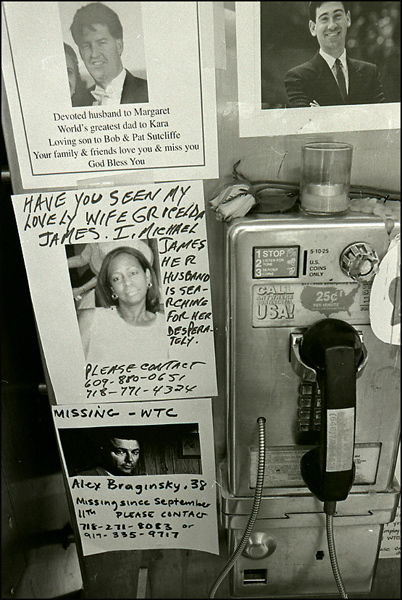 Devoted husband to Margaret
World's greatest dad to Kara
Loving son to Bob & Pat Sutcliffe
Your family & friends love you & miss you
God Bless You
HAVE YOU SEEN MY
LOVELY WIFE GRICELDA
JAMES. I, MICHAEL
JAMES
HER
HUSBAND
IS SEA-
RCHING
FOR HER
DESPERA-
TELY.
PLEASE CONTACT
609-880-0651
718-771-4324
MISSING - WTC
Alex Braginsky, 38
Missing since September
11TH PLEASE CONTACT
718-271-8083 or
917-335-9717
1 STOP
2 LISTEN FOR TONE
3 DEPOSIT COINS
5-10-25
U.S.
COINS
ONLY
CALL
ANYWHERE
USA!
25¢
PER MINUTE